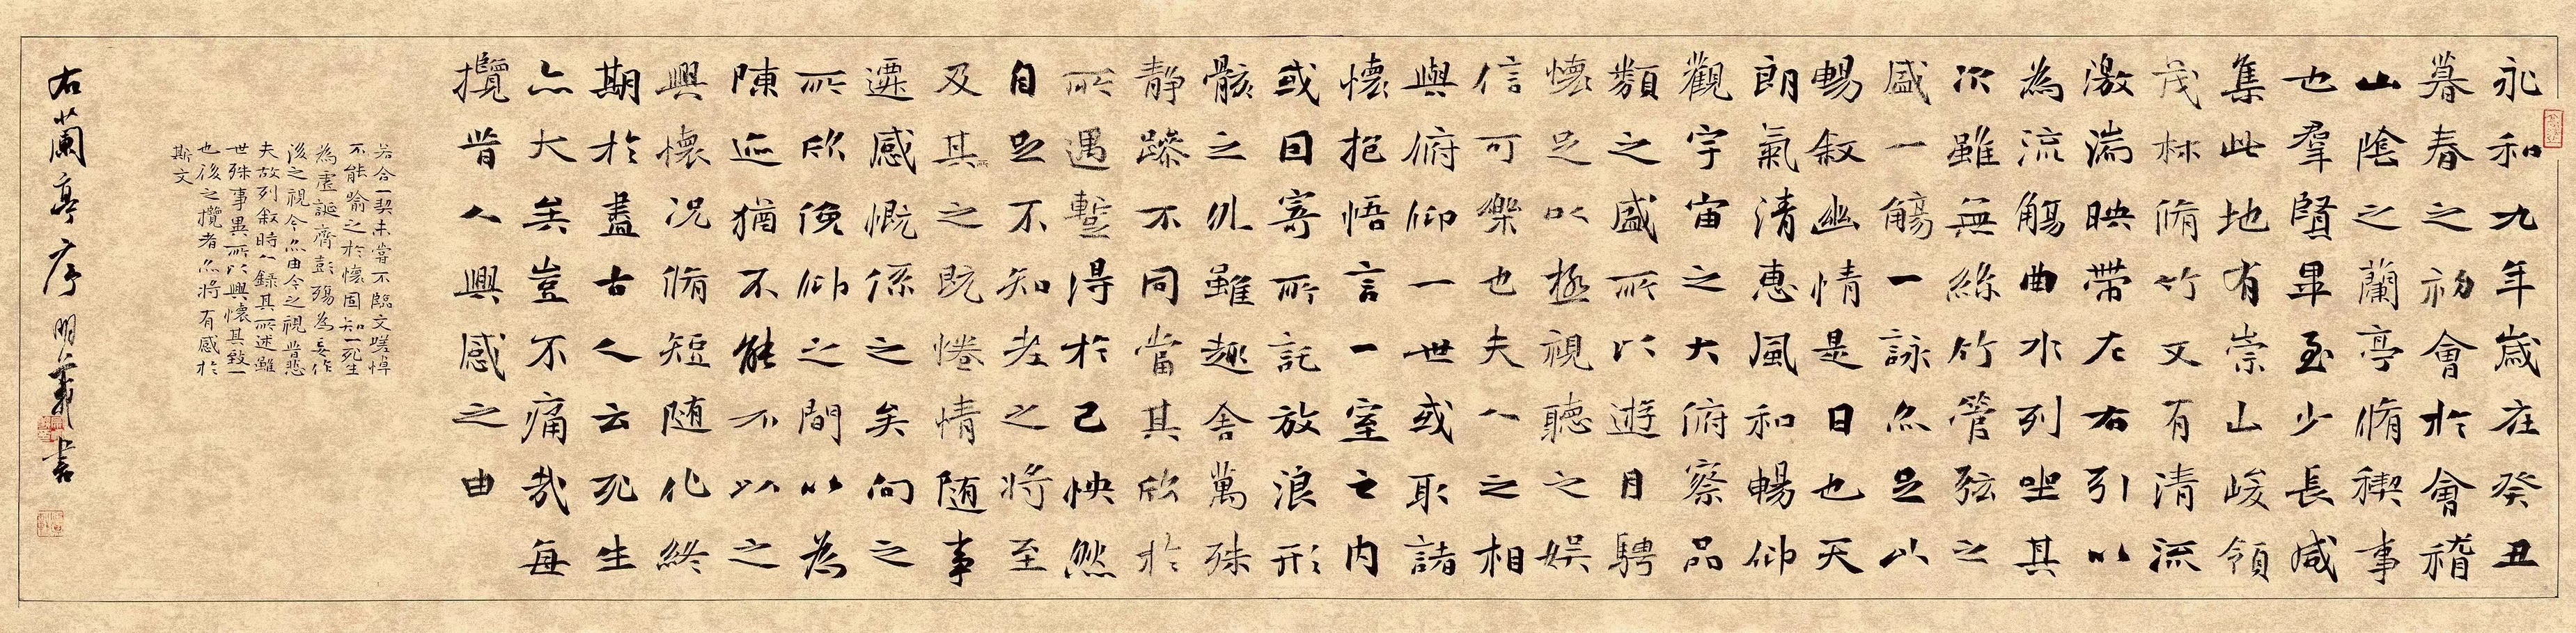 永和九年歲在癸丑
暮春之初會於會稽
山陰之蘭亭脩禊事
也羣賢畢至少長咸
集此地有崇山峻領
茂林脩竹又有清流
激湍映帶左右引以
為流觴曲水列坐其
次雖無絲竹管弦之
盛一觴一詠亦足以
暢敘幽情是日也天
朗氣清惠風和暢仰
觀宇宙之大俯察品
類之盛所以遊目騁
懷足以極視聽之娛
信可樂也夫人之相
與俯仰一世或取諸
懷抱悟言一室之內
或因寄所託放浪形
骸之外雖趣舍萬殊
靜躁不同當其欣於
所遇蹔得於己怏然
自足不知老之將至
及其所之既惓情隨事
遷感慨係之矣向之
所欣俛仰之間以為
陳迹猶不能不以之
興懷況脩短隨化終
期於盡古人云死生
亦大矣豈不痛哉每
攬昔人興感之由
若合一契未嘗不臨文嗟悼
不能喻之於懷固知一死生
為虛誕齊彭殤為妄作
後之視今亦由今之視昔悲
夫故列敘時人錄其所述雖
世殊事異所以興懷其致一
也後之攬者亦將有感於
斯文
右蘭亭序 明義書